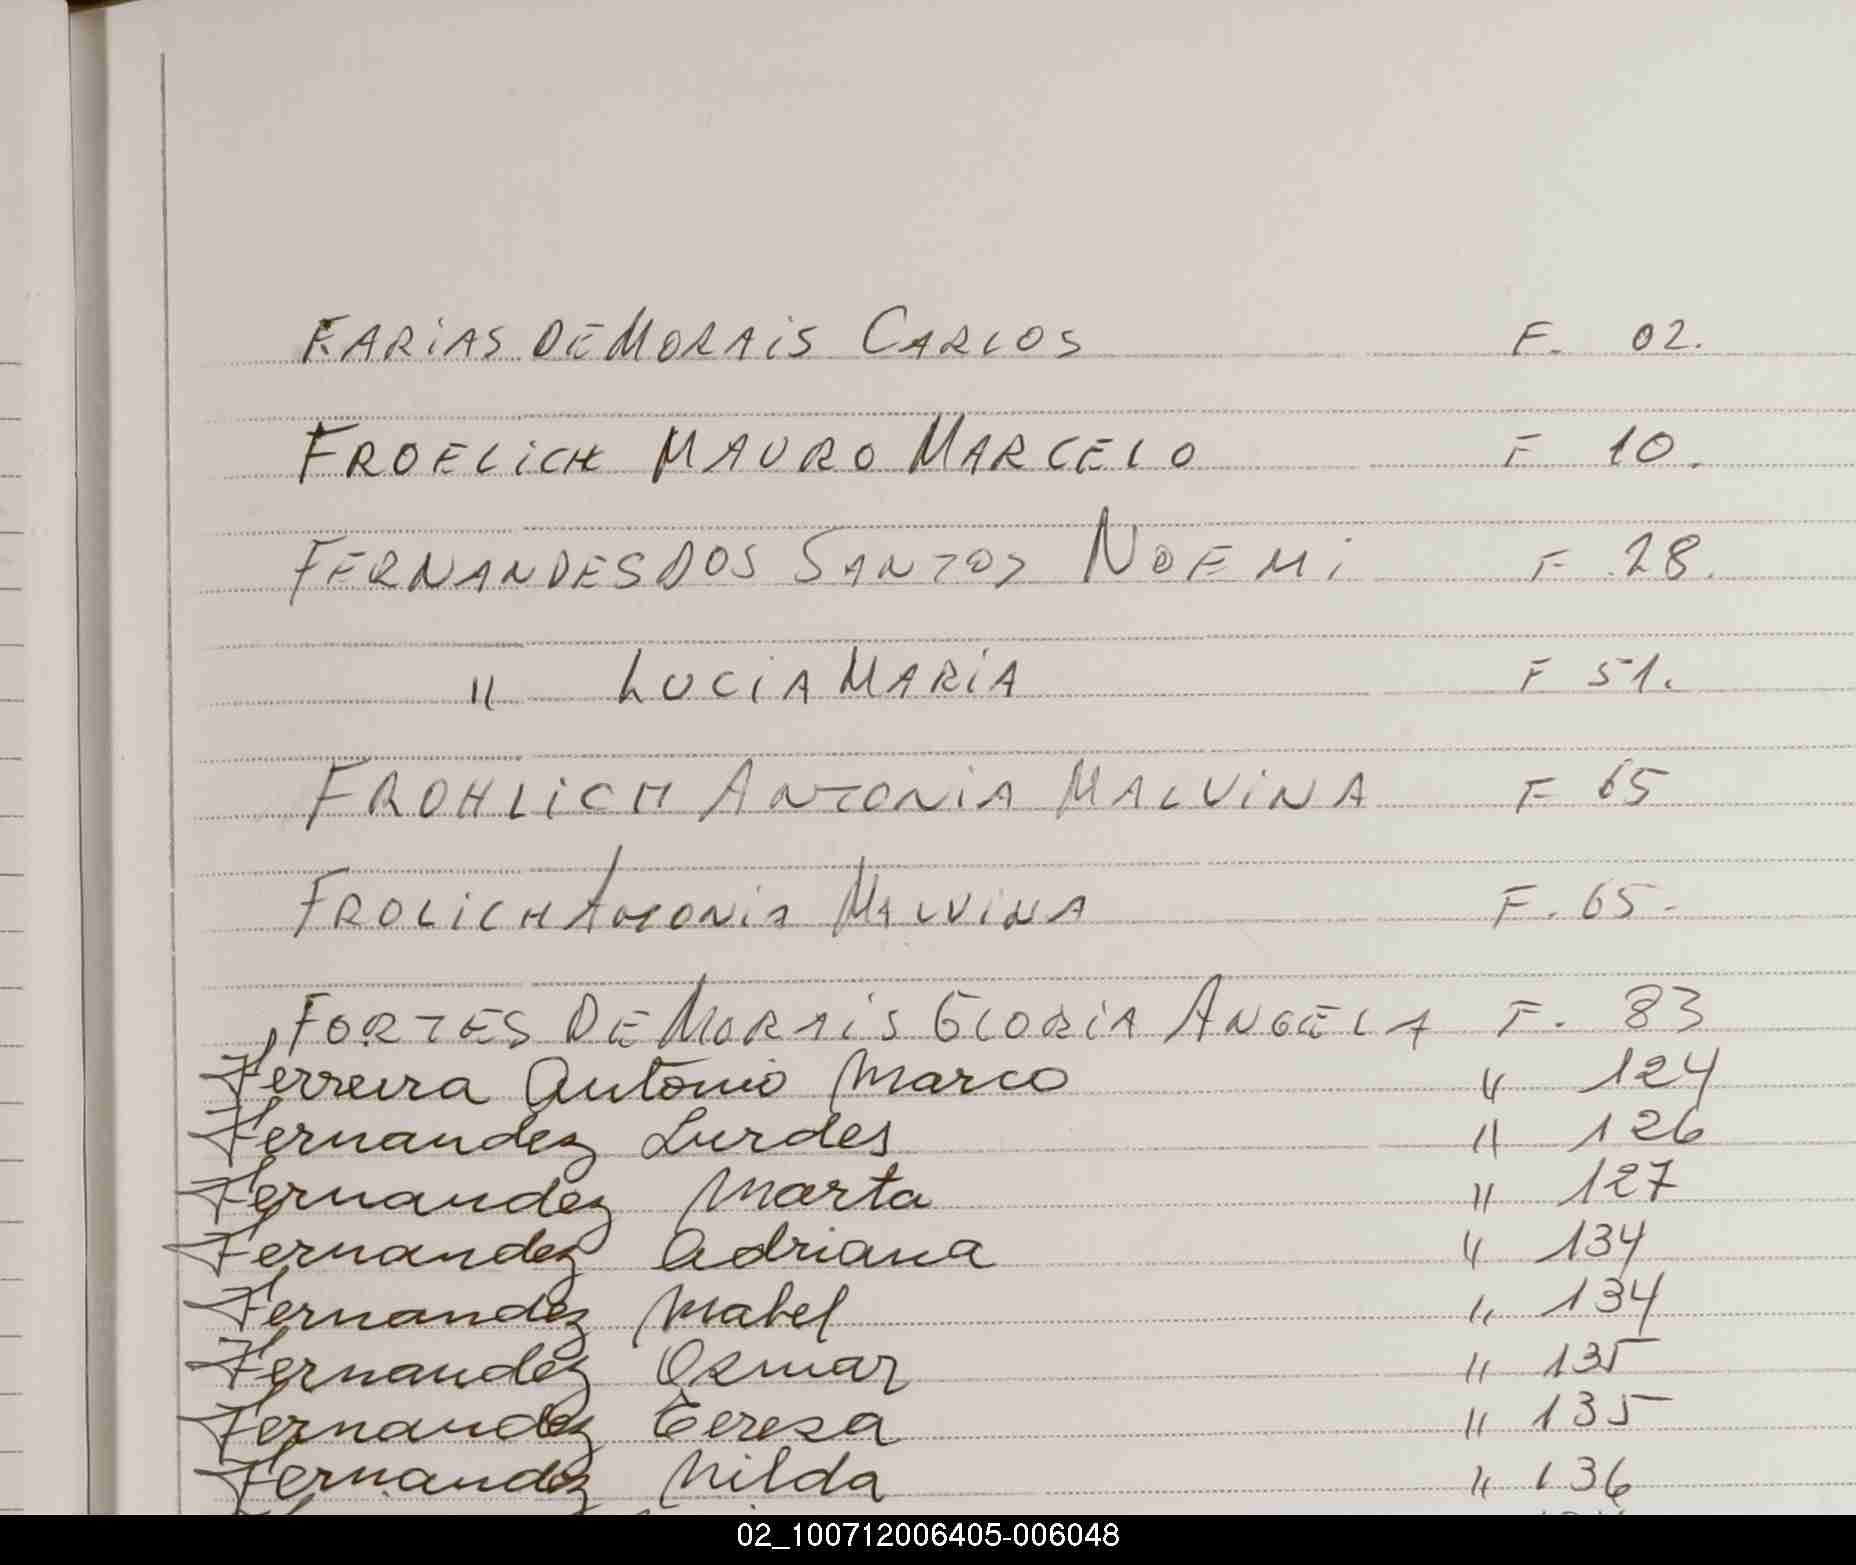 FARIAS DE MORAIS CARLOS F. 02.
FROELICH MAURO MARCELO F 10.
FERNANDES DOS SANTOS NOEMI F 28.
" LUCIA MARIA F 51.
FROHLICH ANTONIA MALVINA F 65
FROLICH ANTONIA MALVINA F. 65.
FORTES DE MORAIS GLORIA ANGELA F. 83
Ferreira Antonio Marco " 124
Fernandez Lurdes " 126
Fernandez Marta " 127
Fernandez Adriana " 134
Fernandez Mabel " 134
Fernandez Osmar " 135
Fernandez Teresa " 135
Fernandez Nilda " 136
02_100712006405-006048